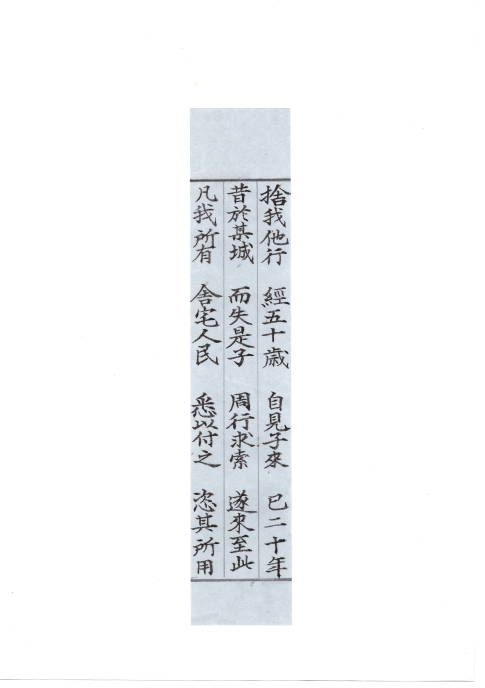 捨我他行 經五十歳 自見子來 已二十年
昔於某城 而失是子 周行求索 遂來至此
凡我所有 舎宅人民 悉以付之 恣其所用